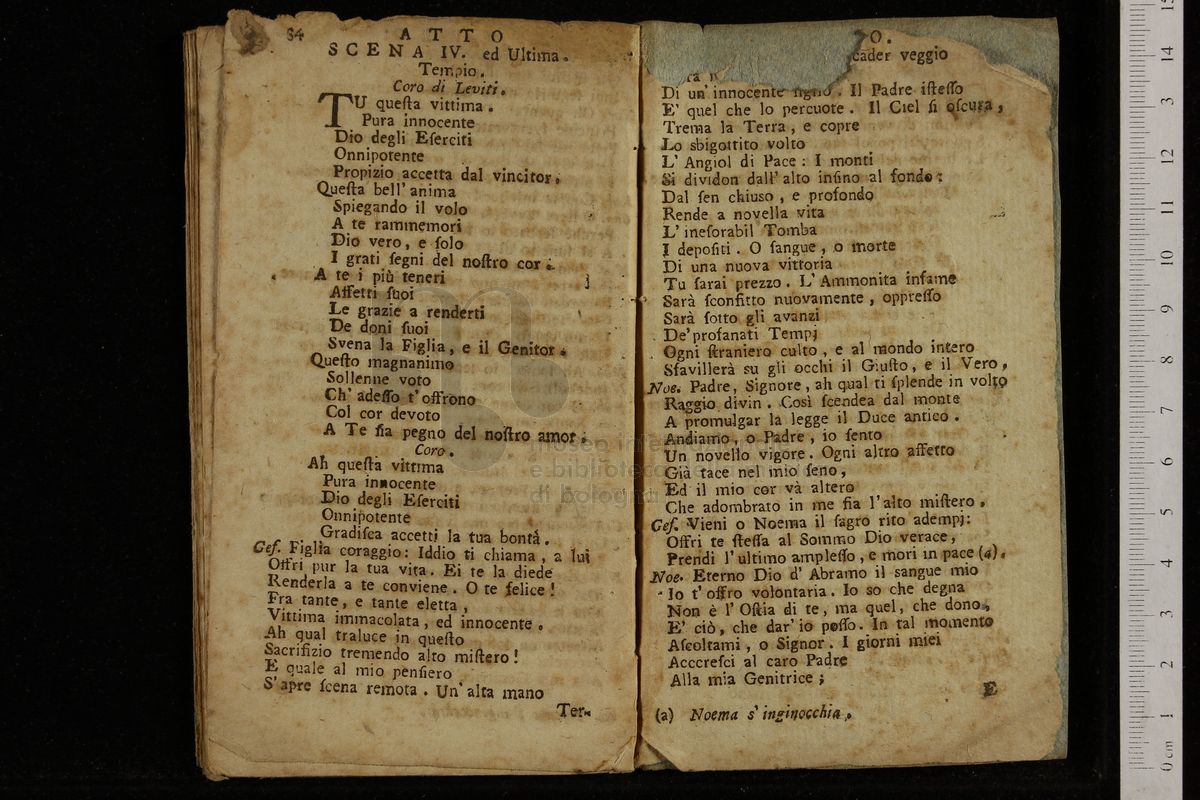 84 ATTO
SCENA IV. ed Ultima.
Tempio.
Coro di Leviti.
TU queſta vittima.
Pura innocente
Dio degli Eſerciti
Onnipotente
Propizio accetta dal vincitor.
Queſta bell' anima
Spiegando il volo
A te rammemori
Dio vero, e ſolo
I grati ſegni del noſtro cor.
A te i più teneri
Affetti ſuoi
Le grazie a renderti
De doni ſuoi
Svena la Figlia, e il Genitor.
Queſto magnanimo
Sollenne voto
Ch' adeſſo t' offrono
Col cor devoto
A Te ſia pegno del noſtro amor.
Coro.
Ah queſta vittima
Pura innocente
Dio degli Eſerciti
Onnipotente
Gradiſca accetti la tua bontà.
Geſ. Figlia coraggio: Iddio ti chiama, a lui
Offri pur la tua vita. Ei te la diede
Renderla a te conviene. O te felice!
Fra tante, e tante eletta,
Vittima immacolata, ed innocente.
Ah qual traluce in queſto
Sacrifizio tremendo alto miſtero!
E quale al mio penſiero
S' apre ſcena remota. Un' alta mano
Ter-
O.
cader veggio
Di un' innocente figlio. Il Padre iſteſſo
E' quel che lo percuote. Il Ciel ſi oſcura,
Trema la Terra, e copre
Lo sbigottito volto
L' Angiol di Pace: I monti
Si dividon dall' alto inſino al fondo:
Dal ſen chiuso, e profondo
Rende a novella vita
L' ineſorabil Tomba
I depoſiti. O ſangue, o morte
Di una nuova vittoria
Tu ſarai prezzo. L' Ammonita infame
Sarà ſconfitto nuovamente, oppreſſo
Sarà ſotto gli avanzi
De' profanati Tempj
Ogni ſtraniero culto, e al mondo intero
Sfavillerà su gli occhi il Giuſto, e il Vero,
Noe. Padre, Signore, ah qual ti ſplende in volto
Raggio divin. Così ſcendea dal monte
A promulgar la legge il Duce antico.
Andiamo, o Padre, io ſento
Un novello vigore. Ogni altro affetto
Già tace nel mio ſeno,
Ed il mio cor và altero
Che adombrato in me ſia l' alto miſtero.
Geſ. Vieni o Noema il ſagro rito adempj:
Offri te ſteſſa al Sommo Dio verace,
Prendi l' ultimo ampleſſo, e mori in pace (a).
Noe. Eterno Dio d' Abramo il sangue mio
Io t' offro volontaria. Io so che degna
Non è l' Oſtia di te, ma quel, che dono,
E' ciò, che dar' io poſſo. In tal momento
Aſcoltami, o Signor. I giorni miei
Acccreſci al caro Padre
Alla mia Genitrice;
E
(a) Noema s' inginocchia.
museo
e biblioteca
di bologna
0 cm 1 2 3 4 5 6 7 8 9 10 11 12 13 14 15